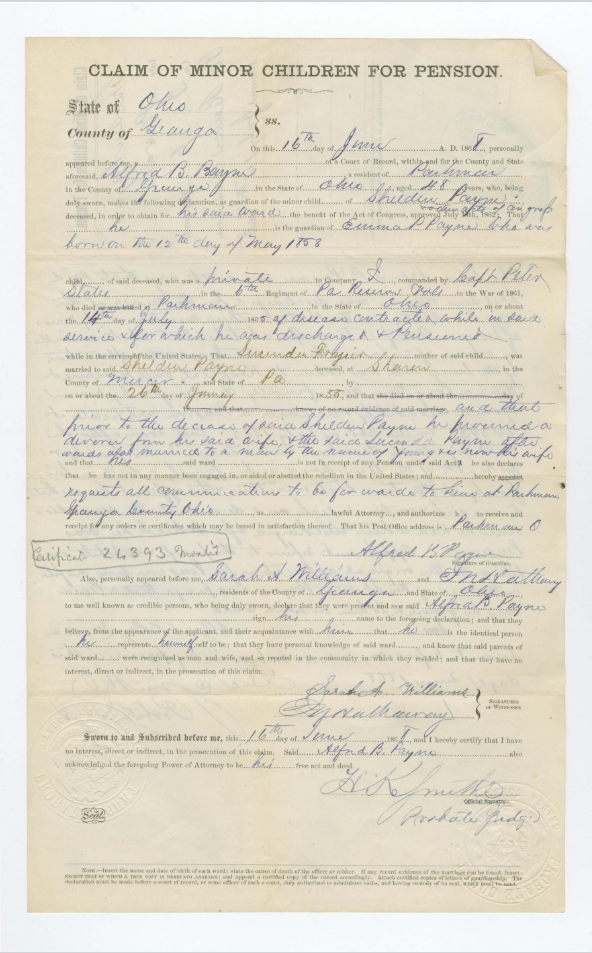 CLAIM OF MINOR CHILDREN FOR PENSION.
State of Ohio
County of Geauga } ss.
On this 16th day of June A. D. 1868, personally
appeared before me, a Court of Record, within and for the County and State
aforesaid, Alfred B. Payne a resident of Parkman
in the County of Geauga in the State of Ohio aged 48 years, who, being
duly sworn, makes the following declaration, as guardian of the minor child of Sheldon Payne
deceased, in order to obtain for his said ward the benefit of the Act of Congress, approved July 14th, 1862: That
he is the guardian of Emma P Payne who was
born on the 12th day of May 1858
child of said deceased, who was a private in Company F commanded by Capt Peter
in the 6th Regiment of Pa Reserve Vols in the War of 1861,
who died at Parkman in the State of Ohio on or about
the 14th day of July 186 of disease contracted while in said
service & for which he was discharged &
while in the service of the United States; That Lucinda mother of said child, was
married to said Sheldon Payne deceased, at Sharon, in the
County of Mercer and State of Pa by
on or about the 26th day of 1855, and that she died on or about the day of
and that knows of no record evidence of said marriage, and that
prior to the decease of said Sheldon Payne he procured a
divorce from his said wife, & the said Lucinda Payne after
wards was married to a man by the name of Young & is now his wife
and that his said ward is not in receipt of any Pension under said Act: he also declares
that he has not in any manner been engaged in, or aided or abetted the rebellion in the United States; and hereby appoint
requests all communications to be forwarded to him at Parkman
Geauga County Ohio as lawful Attorney, and authorizes h to receive and
receipt for any orders or certificates which may be issued in satisfaction thereof. That his Post Office address is Parkman O
Certificate 24393
Alfred B Payne
Signature of Guardian.
Also, personally appeared before me, Sarah A Williams and Hathaway
residents of the County of Geauga and State of Ohio
to me well known as credible persons, who being duly sworn, declare that they were present and saw said Alfred B. Payne
sign his name to the foregoing declaration; and that they
believe, from the appearance of the applicant, and their acquaintance with him that he is the identical person
he represents himself self to be; that they have personal knowledge of said ward and know that said parents of
said ward were recognized as man and wife, and so reputed in the community in which they resided; and that they have no
interest, direct or indirect, in the prosecution of this claim.
Sarah A. Williams
Hathaway
Signatures of Witnesses.
Sworn to and Subscribed before me, this 16th day of June 1868, and I hereby certify that I have
no interest, direct or indirect, in the prosecution of this claim. Said Alfred B. Payne also
acknowledged the foregoing Power of Attorney to be his free act and deed.
H. K. Smith
Official Signature.
Probate Judge
Seal.
NOTE.—Insert the name and date of birth of each ward; state the cause of death of the officer or soldier. If any record evidence of the marriage can be found, insert: